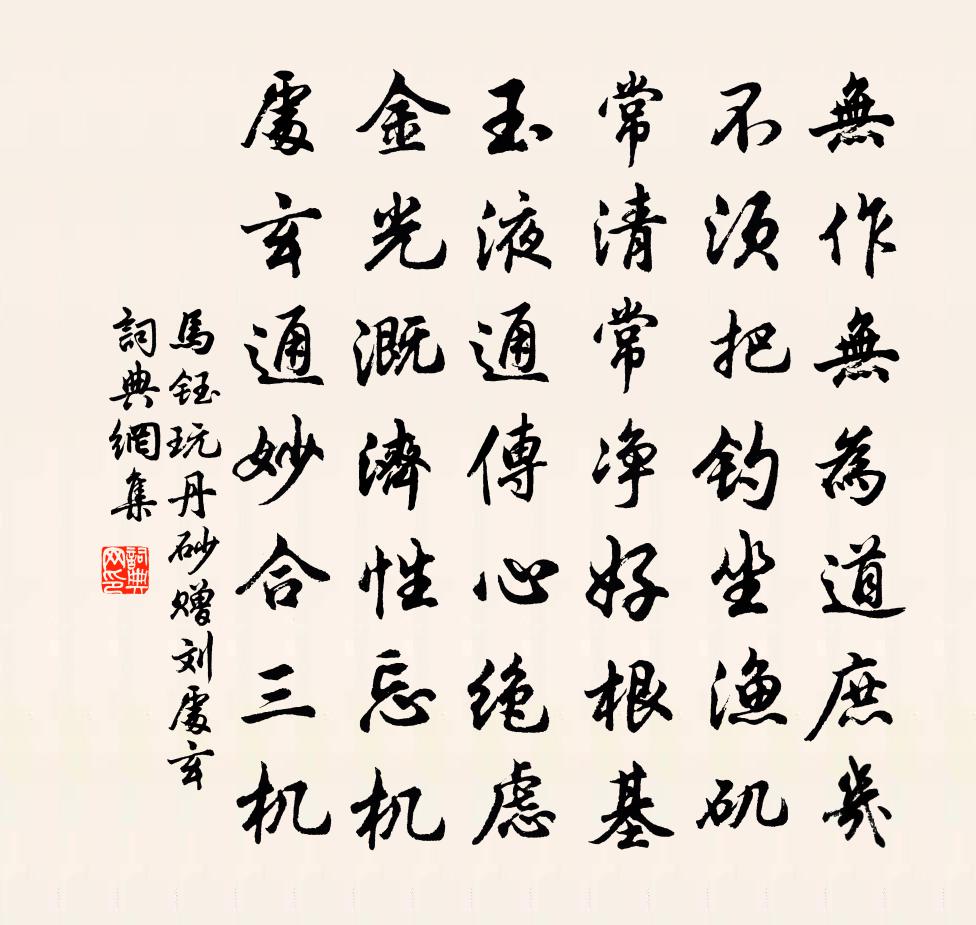 無作無為道庶幾
不須把钓坐漁矶
常清常净好根基
玉液通傳心絶慮
金光溉濟性忘机
處玄通妙合三机
馬钰玩丹砂赠刘處玄
詞典網集
詞典
网印